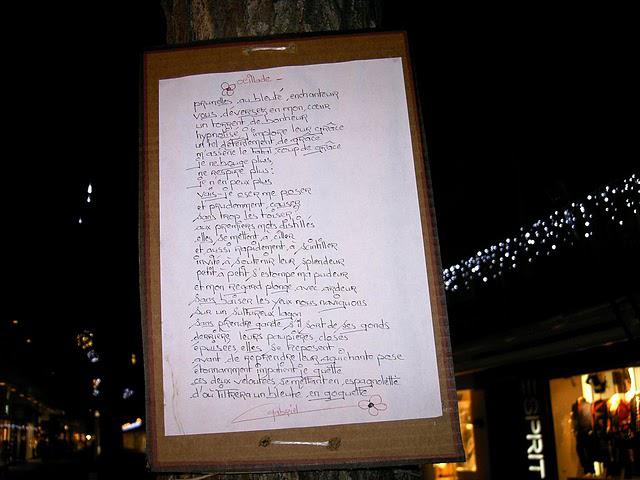 œillade -
prunelles, au bleuté, enchanteur
vous déversez en mon, cœur
un torrent de bonheur
hypnotisé j'implore leur grâce
un tel déferlement de grâce
m'assène le fatal, coup de grâce
je ne bouge plus
ne respire plus :
je n'en peux plus
vais-je oser me poser
et prudemment, causer
sans trop les toiser
aux premiers mots distillés
elles se mettent à ciller
et aussi rapidement, à scintiller
invité à soutenir leur splendeur
petit à petit s'estompe ma pudeur
et mon regard plonge avec ardeur
sans baiser les yeux nous naviguons
sur un sulfureux lagon
sans prendre garde, s'il sort de ses gonds
derrière leurs paupières, closes
épuisées elles se reposent
avant de reprendre leur aguichante pose
étonnamment impatient je guette
ces deux veloutées se mettant en espagnolette
d'où filtrera un bleuté en goguette
gabriel
ESPRIT